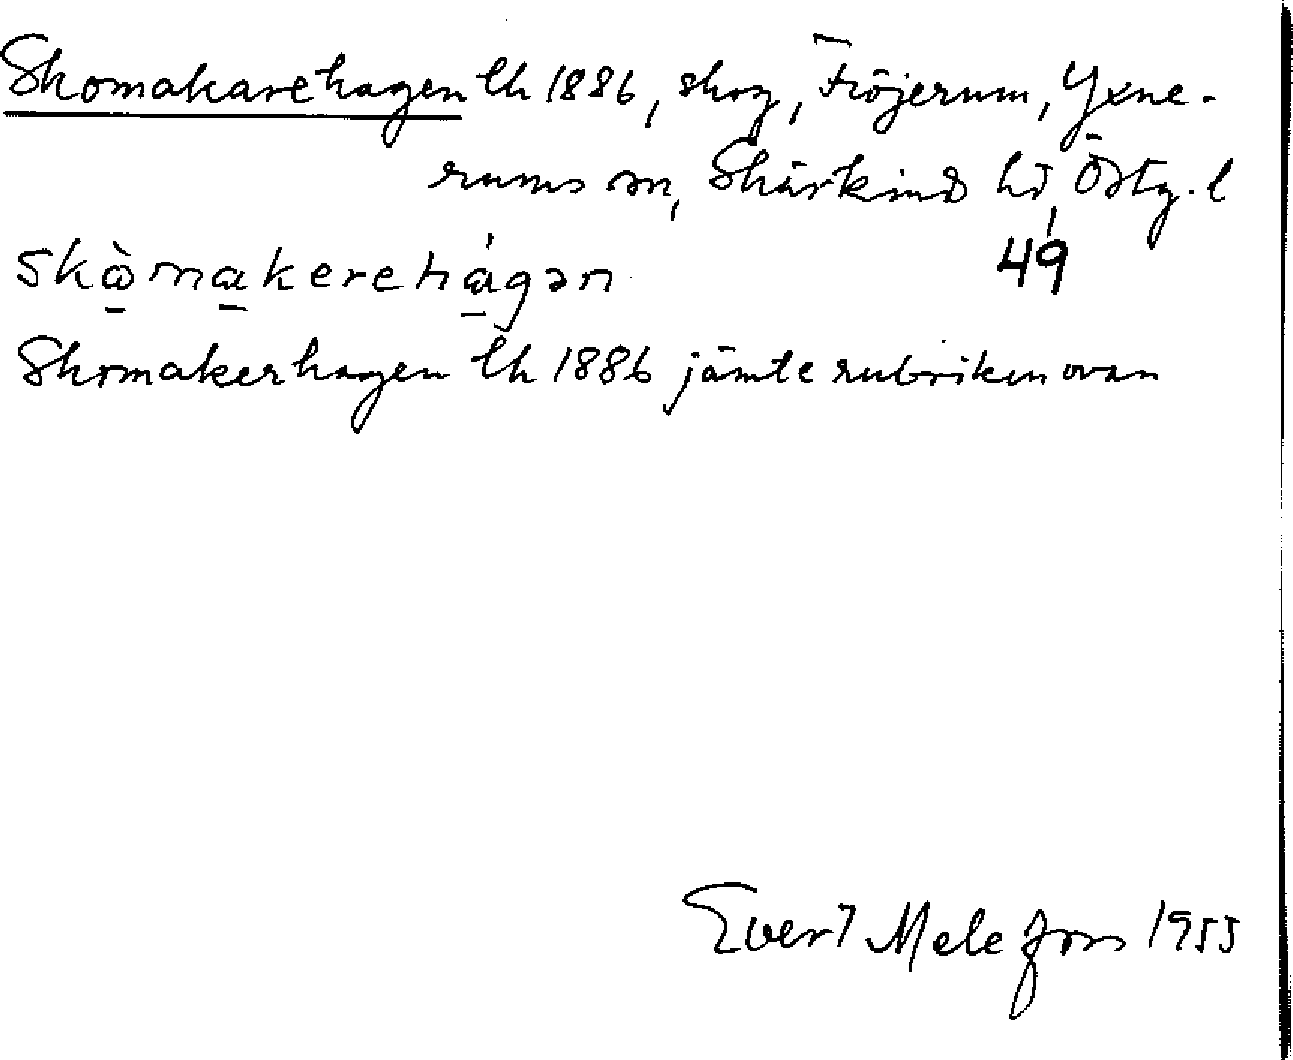 Skomakarehagen lh 1886, skog, Fröjerum, Yxne-
rums sn, Skärkind hd, Östg. l
skɷ̀makerehágən 49
Skomakerhagen lh 1886 jämte rubriken ovan
Evert Melefors 1955